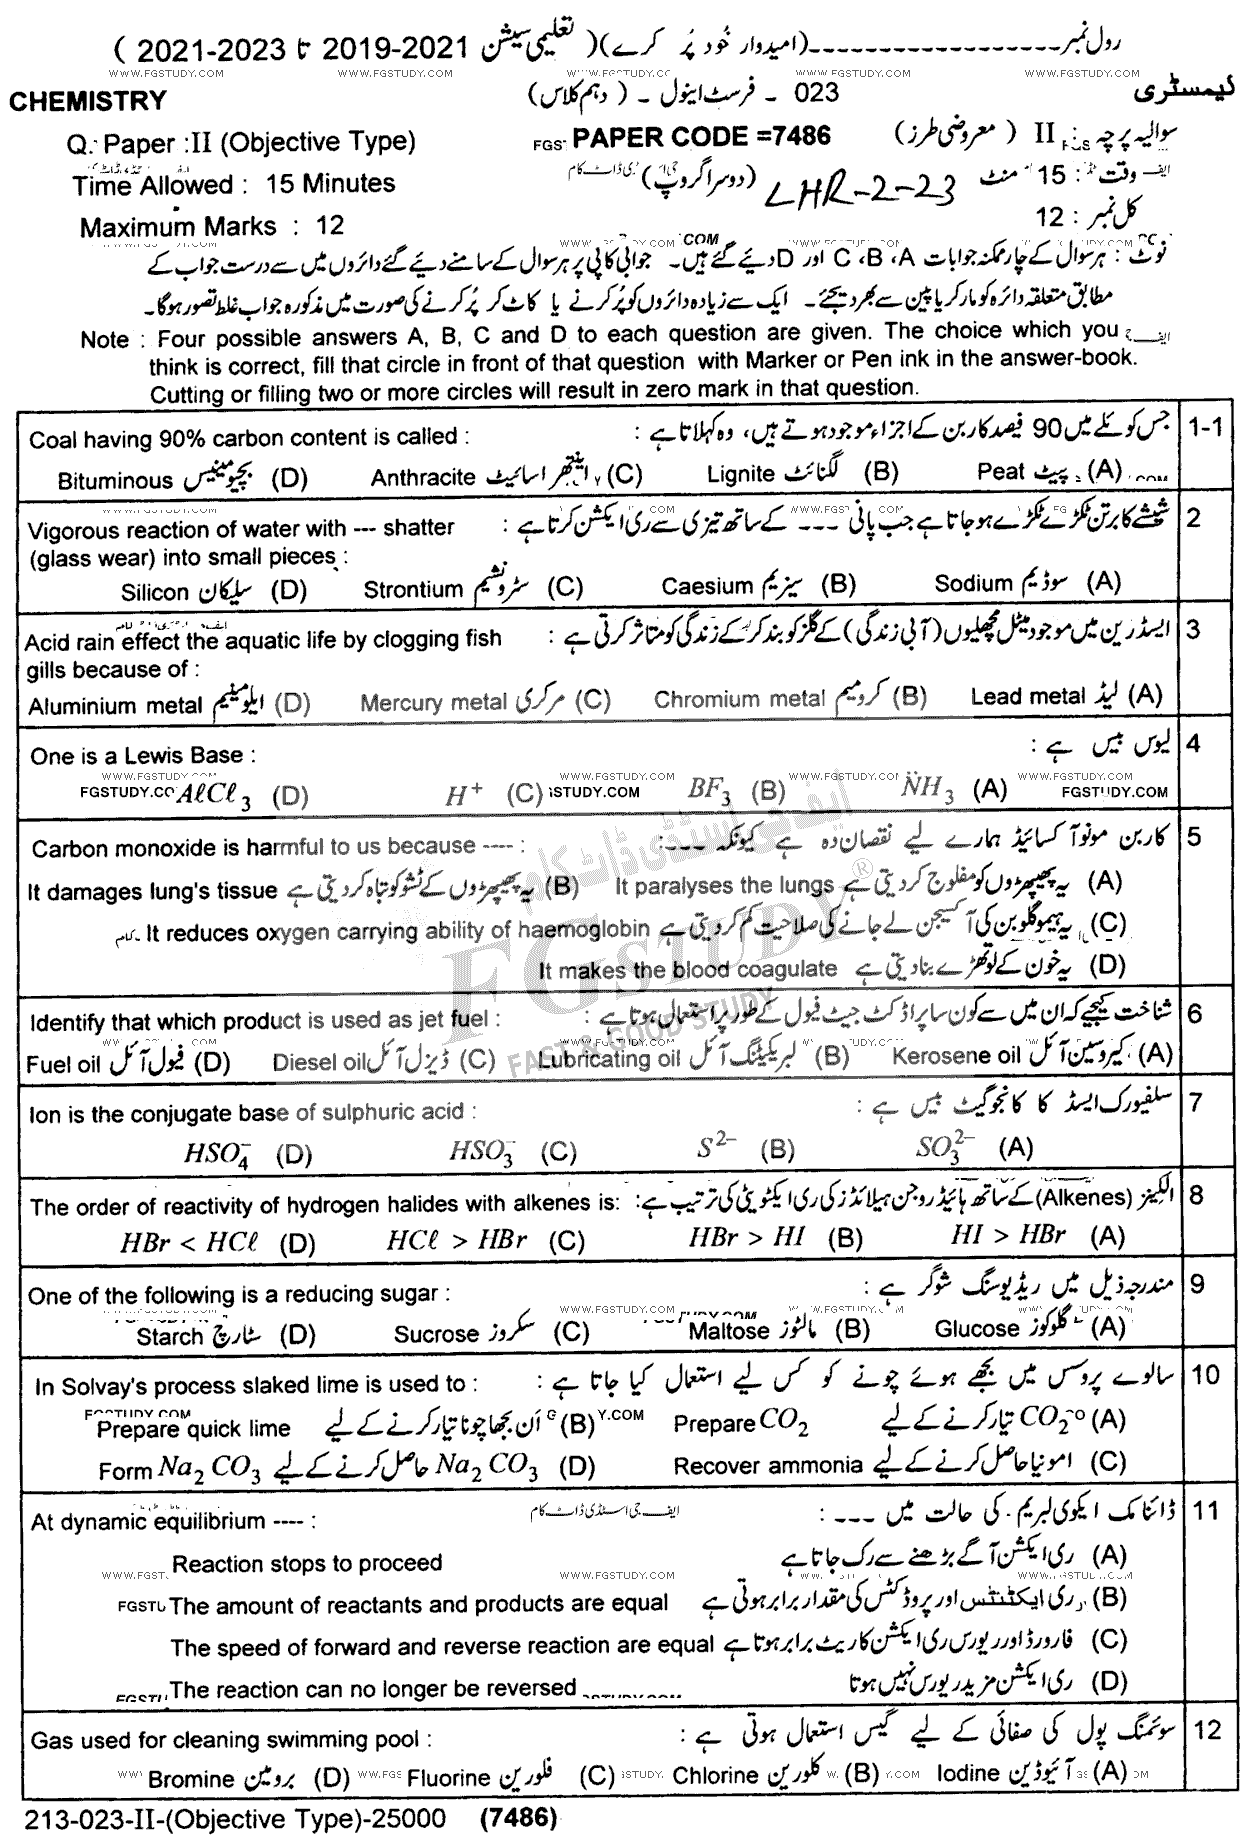 رول نمبر --------------------(امیدوار خُود پُر کرے)( تعلیمی سیشن 2019-2021 تا 2021-2023 )
WWW.FGSTUDY.COM WWW.FGSTUDY.COM WWW.FGSTUDY.CO WWW.FGSTUDY.COM WWW.FGSTUDY.COM
CHEMISTRY 023 - فرسٹ اینول - ( دہم کلاس) کیمسٹری
Q. Paper : II (Objective Type) PAPER CODE =7486 سوالیہ پرچہ : II ( معروضی طرز)
Time Allowed : 15 Minutes (دوسرا گروپ) LHR-2-23 وقت : 15 منٹ
Maximum Marks : 12 کل نمبر : 12
نوٹ : ہر سوال کے چار ممکنہ جوابات A، B، C اور D دیئے گئے ہیں۔ جوابی کاپی پر ہر سوال کے سامنے دیئے گئے دائروں میں سے درست جواب کے
مطابق متعلقہ دائرہ کو مارکر یا پین سے بھر دیجئے۔ ایک سے زیادہ دائروں کو پُر کرنے یا کاٹ کر پُر کرنے کی صورت میں مذکورہ جواب غلط تصور ہوگا۔
Note : Four possible answers A, B, C and D to each question are given. The choice which you
think is correct, fill that circle in front of that question with Marker or Pen ink in the answer-book.
Cutting or filling two or more circles will result in zero mark in that question.
1-1 جس کوئلے میں 90 فیصد کاربن کے اجزاء موجود ہوتے ہیں، وہ کہلاتا ہے :
Coal having 90% carbon content is called :
(A) پیٹ Peat (B) لگنائٹ Lignite (C) اینتھراسائیٹ Anthracite (D) بچیومینیس Bituminous
2 شیشے کا برتن ٹکڑے ٹکڑے ہو جاتا ہے جب پانی --- کے ساتھ تیزی سے ری ایکشن کرتا ہے :
Vigorous reaction of water with --- shatter
(glass wear) into small pieces :
(A) سوڈیم Sodium (B) سیزیم Caesium (C) سٹرونشیم Strontium (D) سیلیکان Silicon
3 ایسڈ رین میں موجود میٹل مچھلیوں (آبی زندگی) کے گلز کو بند کر کے زندگی کو متاثر کرتی ہے :
Acid rain effect the aquatic life by clogging fish
gills because of :
(A) لیڈ Lead metal (B) کرومیم Chromium metal (C) مرکری Mercury metal (D) ایلومینیم Aluminium metal
4 لیوس بیس ہے :
One is a Lewis Base :
(A) N̈H₃ (B) BF₃ (C) H⁺ (D) AℓCℓ₃
5 کاربن مونو آکسائیڈ ہمارے لیے نقصان دہ ہے کیونکہ ---:
Carbon monoxide is harmful to us because ---- :
(A) یہ پھیپھڑوں کو مفلوج کر دیتی ہے It paralyses the lungs (B) یہ پھیپھڑوں کے ٹشو کو تباہ کر دیتی ہے It damages lung's tissue
(C) یہ ہیموگلوبن کی آکسیجن لے جانے کی صلاحیت کم کر دیتی ہے It reduces oxygen carrying ability of haemoglobin
(D) یہ خون کے لوتھڑے بنا دیتی ہے It makes the blood coagulate
ایف جی اسٹڈی ڈاٹ کام
FG STUDY ®
FAST & GOOD STUDY
6 شناخت کیجیے کہ ان میں سے کون سا پراڈکٹ جیٹ فیول کے طور پر استعمال ہوتا ہے :
Identify that which product is used as jet fuel :
(A) کیروسین آئل Kerosene oil (B) لبریکیٹنگ آئل Lubricating oil (C) ڈیزل آئل Diesel oil (D) فیول آئل Fuel oil
7 سلفیورک ایسڈ کا کانجوگیٹ بیس ہے :
Ion is the conjugate base of sulphuric acid :
(A) SO₃²⁻ (B) S²⁻ (C) HSO₃⁻ (D) HSO₄⁻
8 الکینز (Alkenes) کے ساتھ ہائیڈروجن ہیلائڈز کی ری ایکٹویٹی کی ترتیب ہے :
The order of reactivity of hydrogen halides with alkenes is:
(A) HI > HBr (B) HBr > HI (C) HCℓ > HBr (D) HBr < HCℓ
9 مندرجہ ذیل میں ریڈیوسنگ شوگر ہے :
One of the following is a reducing sugar :
(A) گلوکوز Glucose (B) مالٹوز Maltose (C) سکروز Sucrose (D) سٹارچ Starch
10 سالوے پروسس میں بجھے ہوئے چونے کو کس لیے استعمال کیا جاتا ہے :
In Solvay's process slaked lime is used to :
(A) CO₂ تیار کرنے کے لیے Prepare CO₂ (B) اَن بجھا چونا تیار کرنے کے لیے Prepare quick lime
(C) امونیا حاصل کرنے کے لیے Recover ammonia (D) Na₂CO₃ حاصل کرنے کے لیے Form Na₂CO₃
11 ڈائنامک ایکوی لبریم کی حالت میں --- :
At dynamic equilibrium ---- : ایف جی اسٹڈی ڈاٹ کام
(A) ری ایکشن آگے بڑھنے سے رک جاتا ہے Reaction stops to proceed
(B) ری ایکٹنٹس اور پروڈکٹس کی مقدار برابر ہوتی ہے The amount of reactants and products are equal
(C) فارورڈ اور ریورس ری ایکشن کا ریٹ برابر ہوتا ہے The speed of forward and reverse reaction are equal
(D) ری ایکشن مزید ریورس نہیں ہوتا The reaction can no longer be reversed
12 سوئمنگ پول کی صفائی کے لیے گیس استعمال ہوتی ہے :
Gas used for cleaning swimming pool :
(A) آئیوڈین Iodine (B) کلورین Chlorine (C) فلورین Fluorine (D) برومین Bromine
213-023-II-(Objective Type)-25000 (7486)